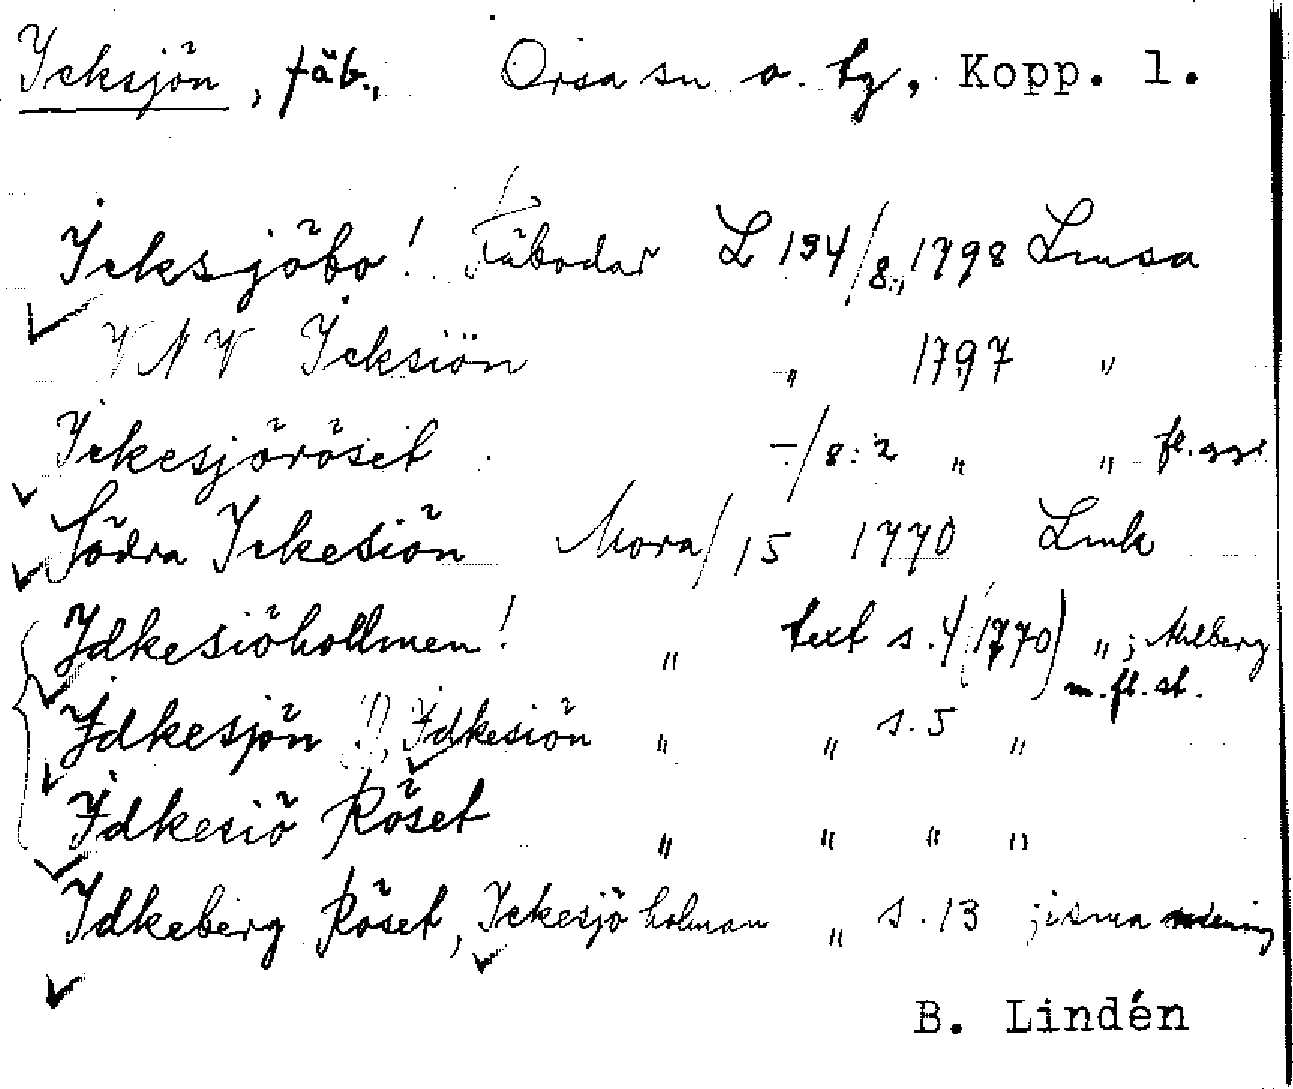 Icksjön, fäb., Orsa sn o. tg, Kopp. l.
Icksjöbo! Fäbodar L 134/8, 1798 Lmsa
V N V Icksiön „ 1797 „
Ickesjöröset -/8:2 „ „ fl. ggr.
Södra Ickesiön Mora/15 1770 Lmk
Idkesiöhollmen! „ text s. 4 (1770) „ ; Milberg
m. fl. st.
Idkesjön !!, Idkesiön „ „ s. 5 „
Idkesiö Röset „ „ „ „
Idkeberg Röset, Ickesjö holman „ s. 13 ; isma mening
B. Lindén